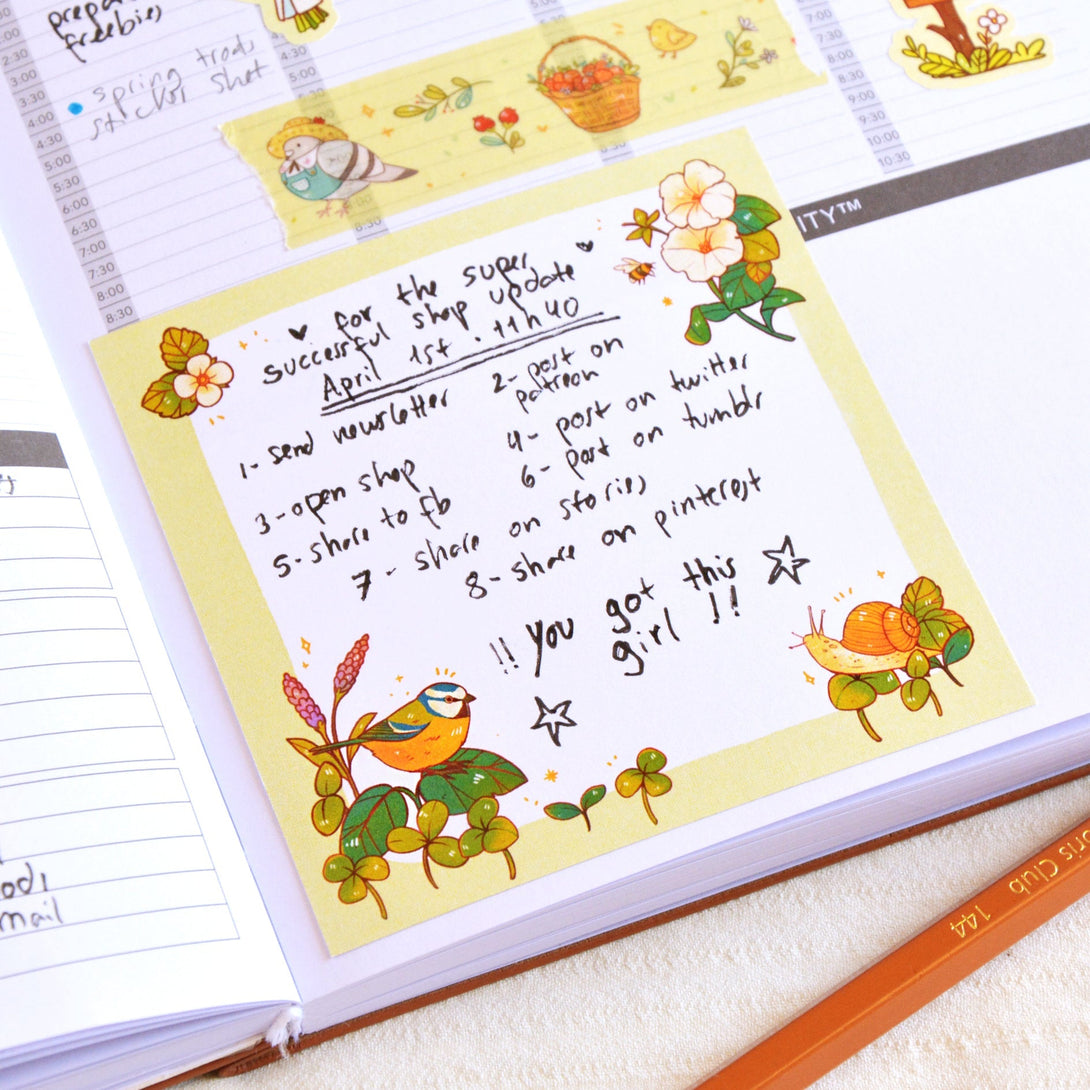 prepa
freebies
2:30
3:00
3:30
4:00
4:30
5:00
5:30
6:00
6:30
7:00
7:30
8:00
8:30
spring
sticker
4:30
5:00
8:30
7:00
7:30
8:00
8:30
9:00
9:30
10:00
10:30
ITY™
for the super
successful shop update
April 1st . 11h40
1- send newsletter
2- post on
patreon
3- open shop
4- post on twitter
5- share to fb
6- post on tumblr
7- share on stories
8- share on pinterest
!! You got this
girl !!
mail
oris Club 144